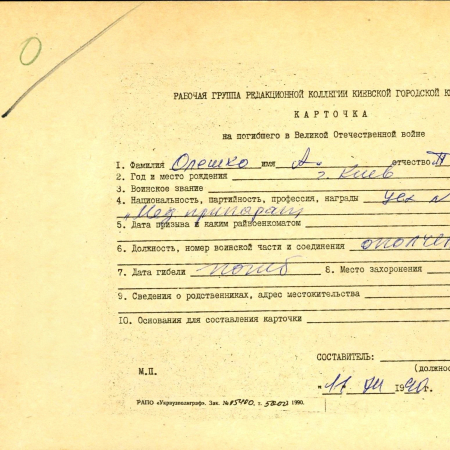 О
РАБОЧАЯ ГРУППА РЕДАКЦИОННОЙ КОЛЛЕГИИ КИЕВСКОЙ ГОРОДСКОЙ К
КАРТОЧКА
на погибшего в Великой Отечественной войне
I. Фамилия Олешко имя А. отчество П
2. Год и место рождения г. Киев
3. Воинское звание
4. Национальность, партийность, профессия, награды цех №
"Мед препарат
5. Дата призыва и каким райвоенкоматом
6. Должность, номер воинской части и соединения ополчен
7. Дата гибели погиб 8. Место захоронения
9. Сведения о родственниках, адрес местокительства
IO. Основания для составления карточки
СОСТАВИТЕЛЬ:
(должнос
М.П.
"11" XII 1990г.
РАПО «Укрвузполиграф». Зак. № 85400, т. 1990.